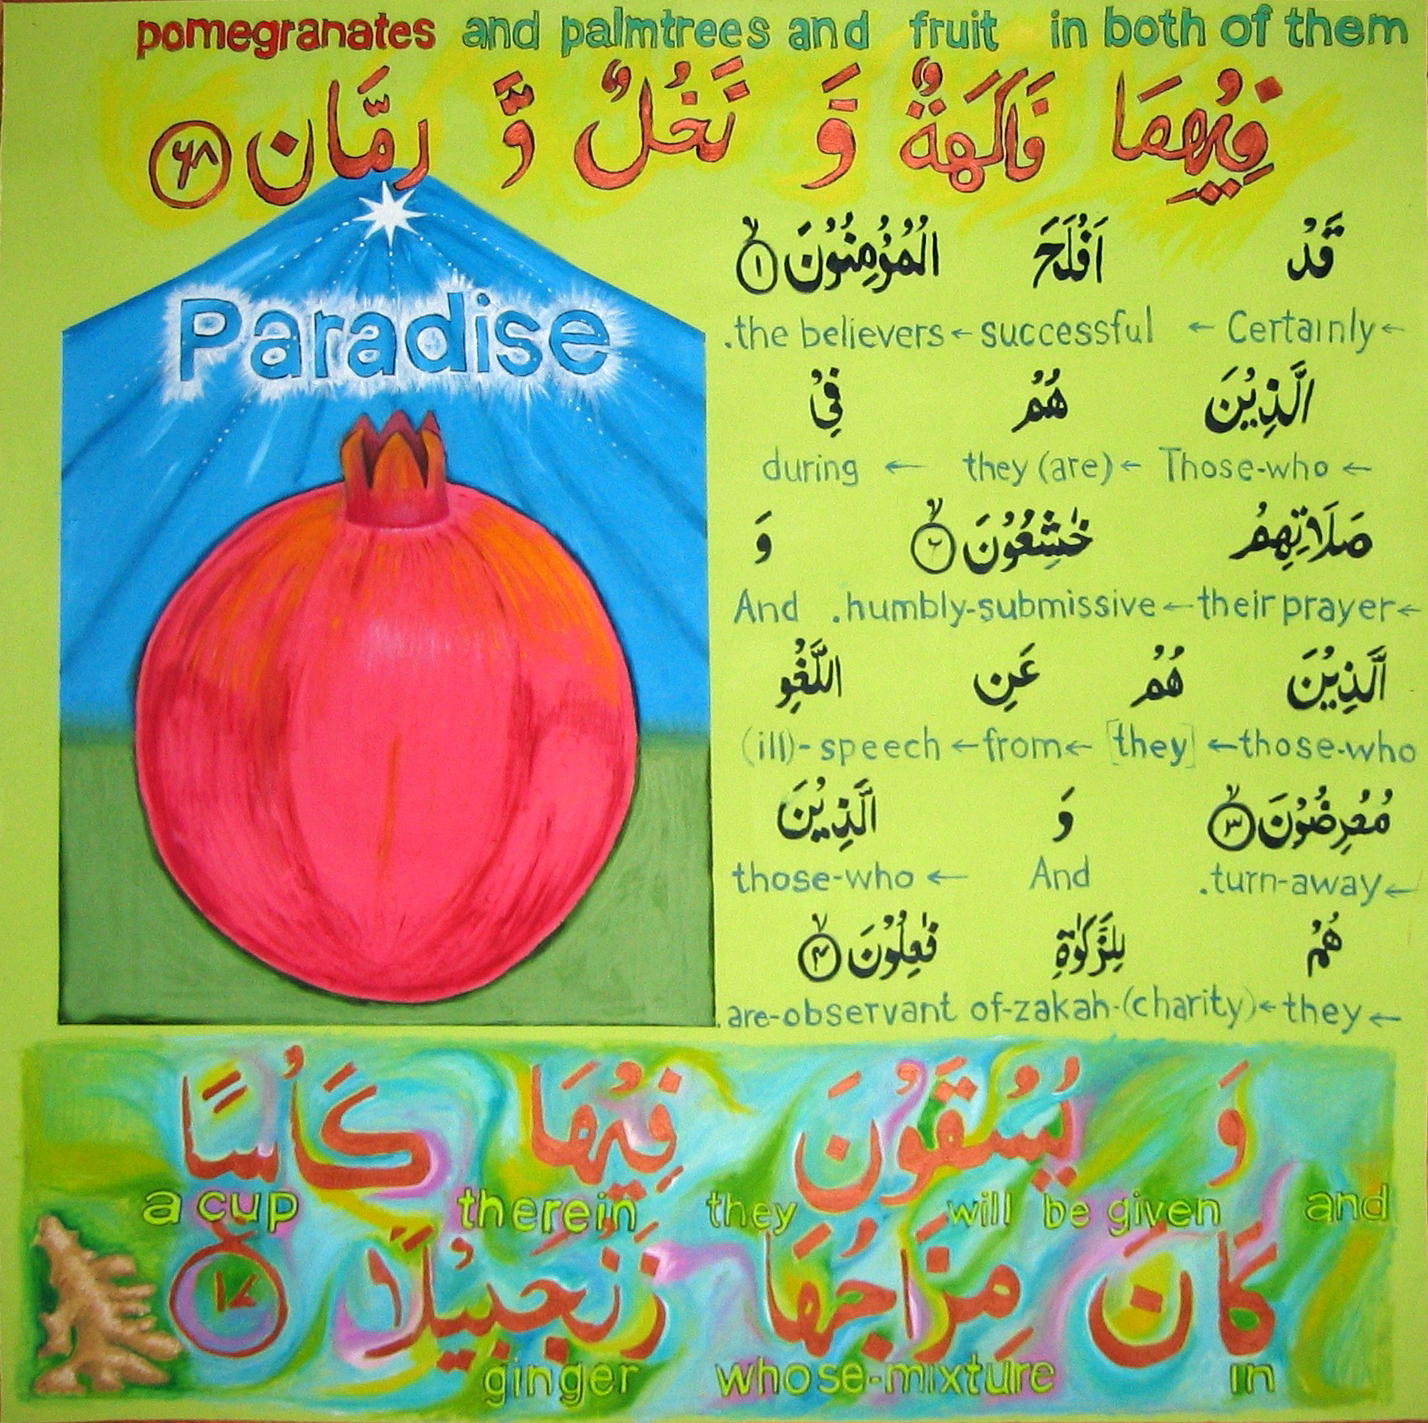 pomegranates and palmtrees and fruit in both of them
فِيْهِمَا فَاكِهَةٌ وَ نَخْلٌ وَّ رمَّان ۶۸
Paradise
قَدْ اَفْلَحَ الْمُؤْمِنُوْنَ ۱
.the believers ← successful ← Certainly ←
الَّذِيْنَ هُمْ فِيْ
during ← they (are) ← Those-who ←
صَلَاتِهِمْ خٰشِعُوْنَ ۲ وَ
And .humbly-submissive ← their prayer ←
الَّذِيْنَ هُمْ عَنِ اللَّغْوِ
(ill)-speech ← from ← [they] ← those-who
مُعْرِضُوْنَ ۳ وَ الَّذِيْنَ
those-who ← And .turn-away ←
هُمْ لِلزَّكٰوةِ فٰعِلُوْنَ ۴
.are-observant of-zakah-(charity) ← they ←
وَ يُسْقَوْنَ فِيْهَا كَاْسًا
a cup therein they will be given and
كَانَ مِزَاجُهَا زَنْجَبِيْلًا ۱۷
ginger whose-mixture in